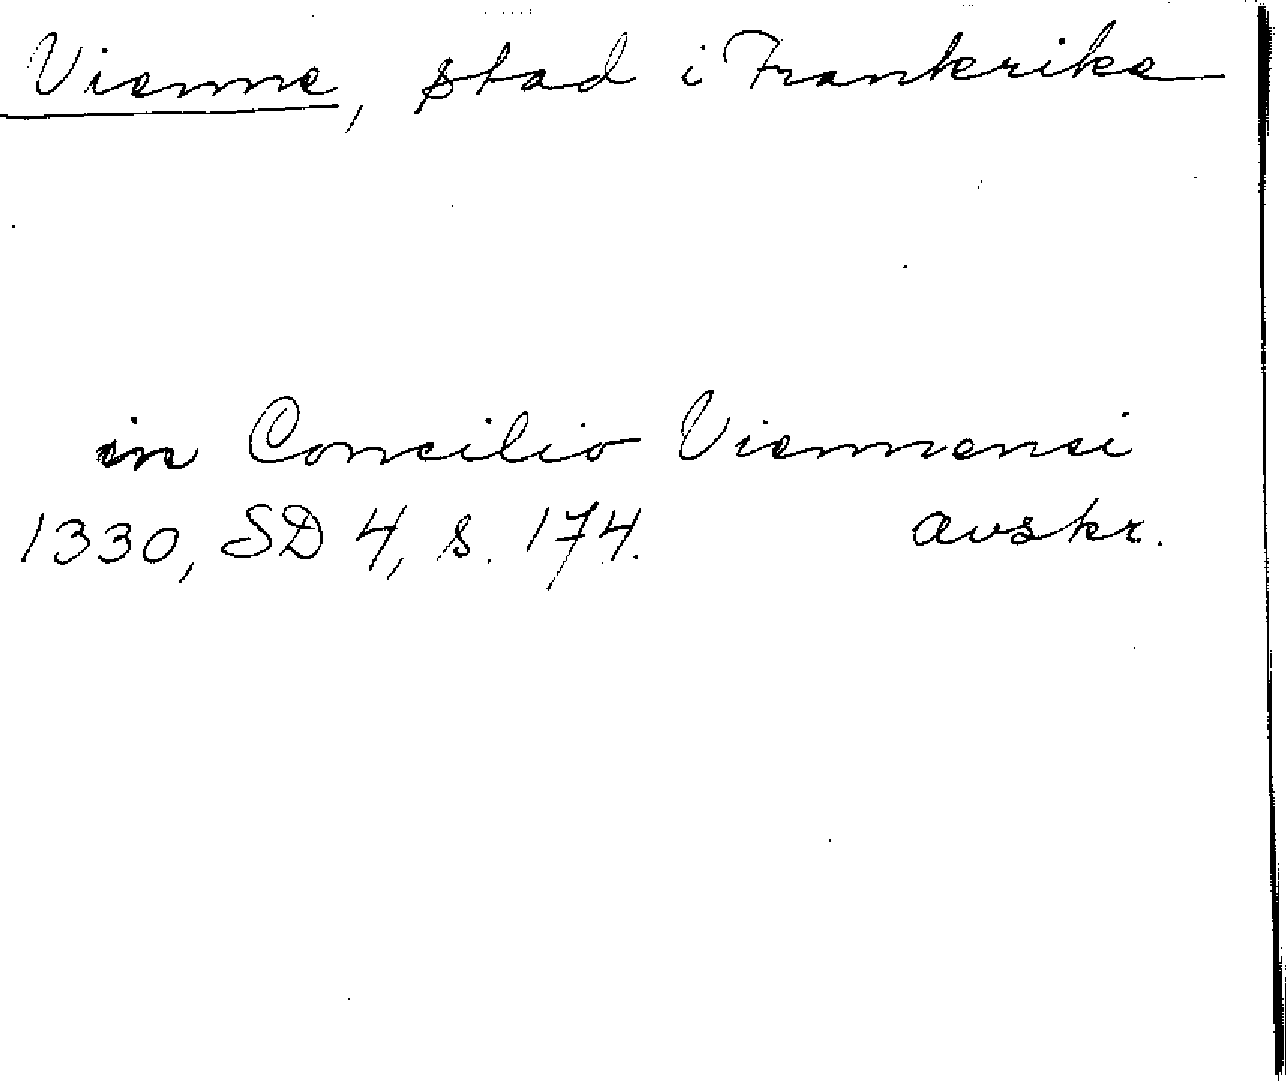 Vienne, stad i Frankrike
in Concilio Viennensi
1330, SD 4, s. 174. avskr.